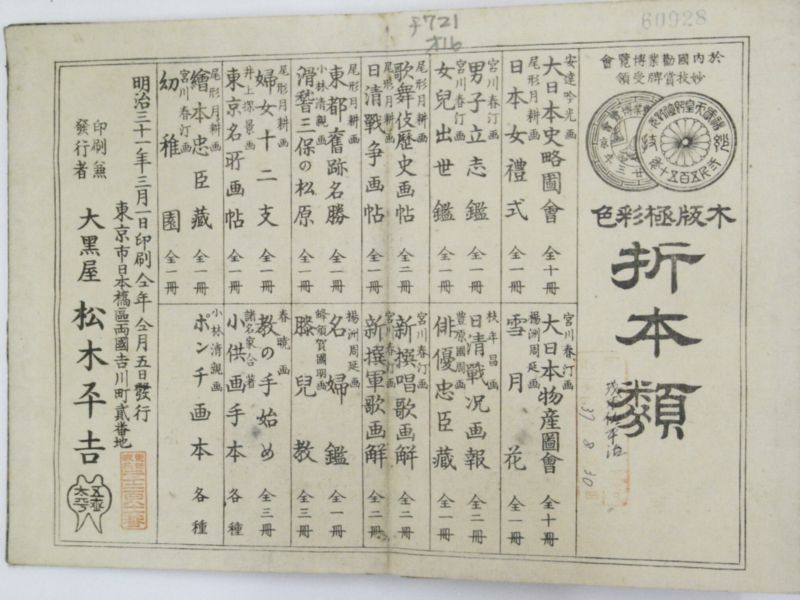 チ721
オ16
60928
於内國勧業博覧會
妙技賞牌受領
木版極彩色
折本類
37 8 30
安達吟光画
大日本史略圖會 全十冊
尾形月耕画
日本女禮式 全一冊
宮川春汀画
男子立志鑑 全一冊
宮川春汀画
女兒出世鑑 全一冊
尾形月耕画
歌舞伎歴史画帖 全二冊
尾形月耕画
日清戰争画帖 全一冊
尾形月耕画
東都舊跡名勝 全一冊
小林清親画
滑稽三保の松原 全一冊
尾形月耕画
婦女十二支 全一冊
井上探景画
東京名所画帖 全一冊
尾形月耕画
繪本忠臣藏 全一冊
宮川春汀画
幼稚園 全一冊
宮川春汀画
大日本物産圖會 全十冊
楊洲周延画
雪月花 全一冊
枝年昌画
日清戰况画報 全二冊
豊原國周画
俳優忠臣藏 全一冊
宮川春汀画
新撰唱歌画解 全二冊
宮川春汀画
新撰軍歌画解 全二冊
楊洲周延画
名婦鑑 全一冊
膝兒教 全三冊
春暁画
教の手始め 全三冊
諸名家合著
小供画手本 各種
小林清親画
ポンチ画本 各種
明治三十一年三月一日印刷仝年仝月五日發行
東京市日本橋區両國吉川町貳番地
印刷兼
發行者
大黒屋 松木平吉